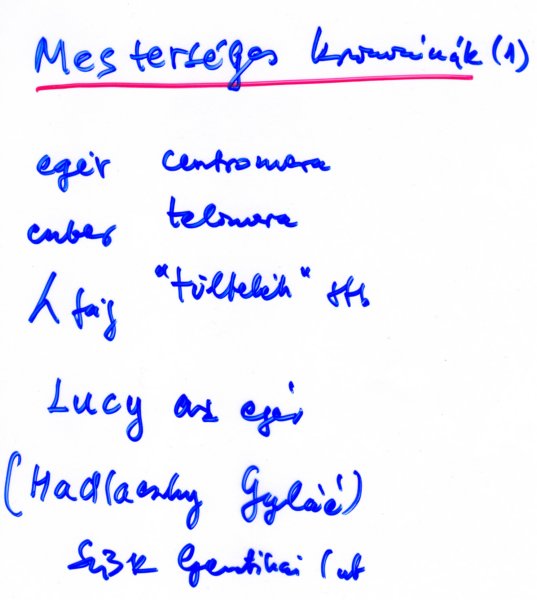 Mesterséges kromoszómák (1)
egér centromera
ember telomera
λ fág "töltelék" stb
Lucy az egér
(Hadlaczky Gyuláé)
SZBK Genetikai Int